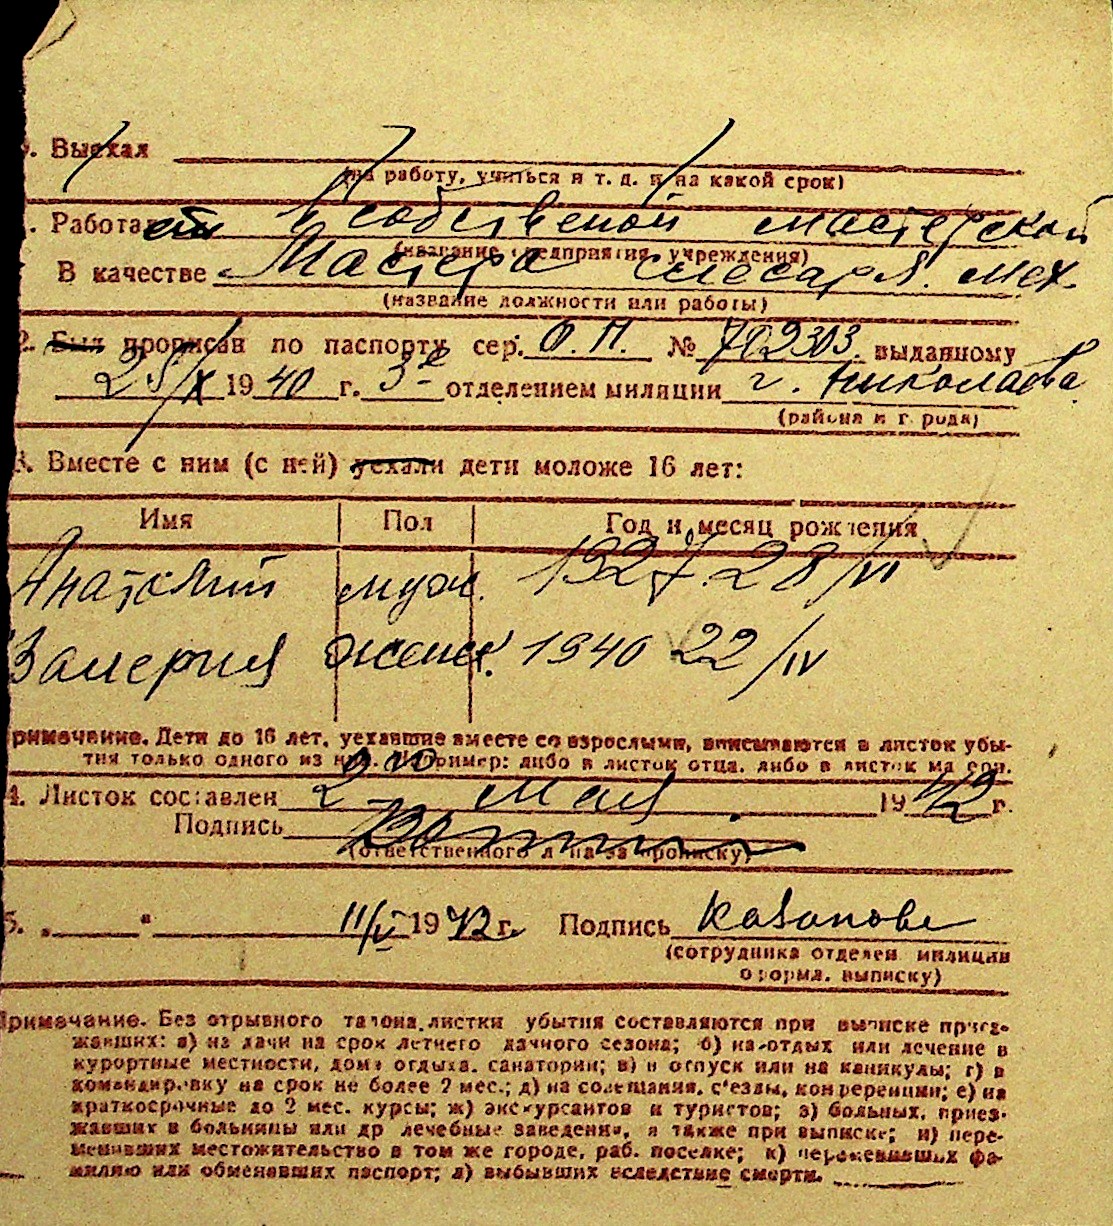 . Выехал
(на работу, учиться и т. д. и на какой срок)
. Работает в собственой мастерской
(название предприятия, учреждения)
В качестве Мастера слесаря. мех.
(название должности или работы)
2. Был прописан по паспорту сер. О.П. № 702303. выданному
25/X 1940 г. 3е отделением милиции г. Николаева
(района и города)
3. Вместе с ним (с ней) уехали дети моложе 16 лет:
Имя Пол Год и месяц рождения
Анатолий муж. 1927. 28/VI
Валерия женск. 1940 22/IV
римечание. Дети до 16 лет, уехавшие вместе со взрослыми, вписываются в листок убы-
тия только одного из них. Например: либо в листок отца, либо в листок матери.
4. Листок составлен 2го Мая 1942 г.
Подпись
(ответственного лица за прописку)
5. „ “ 11/V 1942 г. Подпись
(сотрудника отделен. милиции
оформл. выписку)
Примечание. Без отрывного талона листки убытия составляются при выписке приез-
жавших: а) на дачи на срок летнего дачного сезона; б) на отдых или лечение в
курортные местности, дома отдыха, санатории; в) в отпуск или на каникулы; г) в
командировку на срок не более 2 мес.; д) на совещания, с'езды, конференции; е) на
краткосрочные до 2 мес. курсы; ж) экскурсантов и туристов; з) больных, приез-
жавших в больницы или др лечебные заведения, а также при выписке; и) пере-
менивших местожительство в том же городе, раб. поселке; к) переменивших фа-
милию или обменявших паспорт; л) выбывших вследствие смерти.